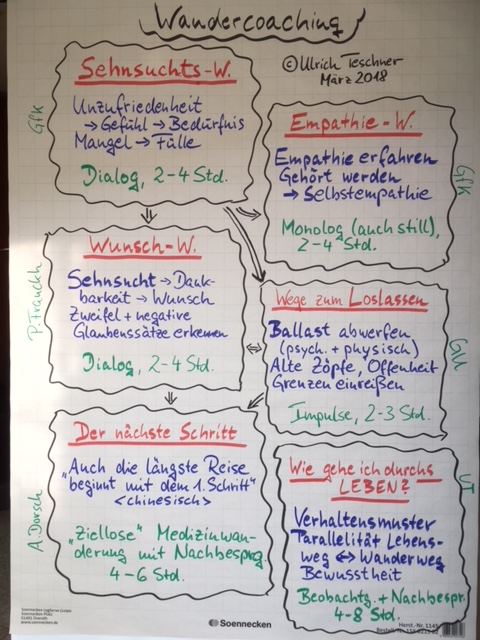 Wandercoaching
© Ulrich Teschner
März 2018
GfK
Sehnsuchts-W.
Unzufriedenheit
→ Gefühl → Bedürfnis
Mangel → Fülle
Dialog, 2-4 Std.
Empathie-W.
Empathie erfahren
Gehört werden
→ Selbstempathie
Monolog (auch still),
2-4 Std.
GfK
P. Franckh
Wunsch-W.
Sehnsucht → Dank-
barkeit → Wunsch
Zweifel + negative
Glaubenssätze erkennen
Dialog, 2-4 Std.
Wege zum Loslassen
Ballast abwerfen
(psych. + physisch)
Alte Zöpfe, Offenheit
Grenzen einreißen
Impulse, 2-3 Std.
A. Dorsch
Der nächste Schritt
„Auch die längste Reise
beginnt mit dem 1. Schritt"
<chinesisch>
„Ziellose" Medizinwan-
derung mit Nachbesprg.
4-6 Std.
UT
Wie gehe ich durchs
LEBEN?
Verhaltensmuster
Parallelität Lebens-
weg ↔ Wanderweg
Bewusstheit
Beobachtg. + Nachbespr.
4-8 Std.
Soennecken
www.soennecken.de